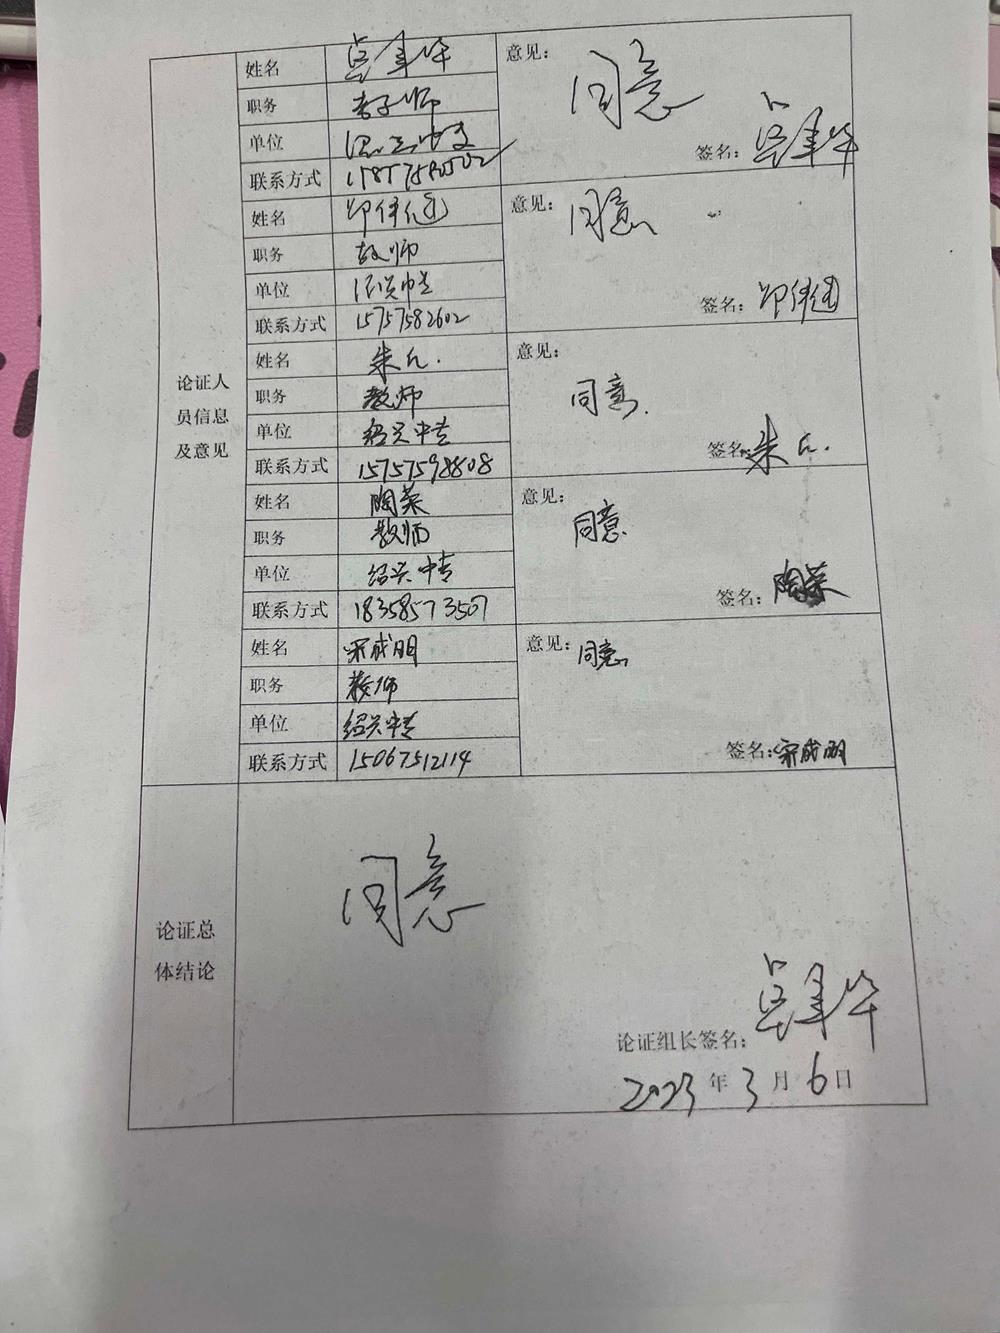 姓名
意见：
同意
职务
单位
签名：
联系方式
姓名
意见：
同意
职务 教师
单位
签名：
联系方式 15757582602
姓名 朱
意见：
同意
职务 教师
单位 绍兴中专
签名： 朱
联系方式 15757598808
姓名 陶荣
意见：
同意
职务 教师
单位 绍兴中专
签名： 陶荣
联系方式 18358573507
姓名 宋成明
意见： 同意
职务 教师
单位 绍兴中专
签名： 宋成明
联系方式 15067512114
论证人
员信息
及意见
同意
论证总
体结论
论证组长签名：
2023 年 3 月 6 日